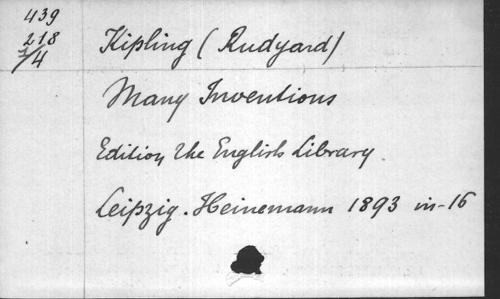 439
218
1/4
Kipling (Rudyard)
Many Inventions
Edition The English Library.
Leipzig. Heinemann 1893 in-16